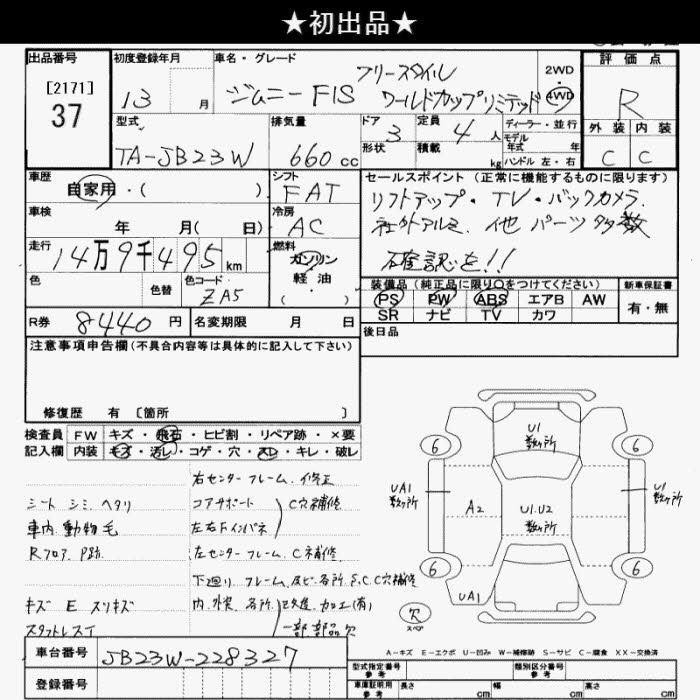 ★初出品★
出品番号 初度登録年月 車名・グレード 評価点
[2171]
37
13 月
ジムニー FIS フリースタイル
ワールドカップリミテッド
2WD
4WD
R
型式 排気量 ドア 定員 ディーラー・並行
TA-JB23W 660 cc 3 4 人
形状 積載 kg
モデル年式 年
ハンドル 左・右
外装 内装
C C
車歴 シフト セールスポイント (正常に機能するものに限ります)
自家用・( )
FAT
リフトアップ・TV・バックカメラ
車検 冷房
年 月( 日)
AC
社外アルミ、他 パーツ多数
走行 燃料
14万9千495 km
ガソリン
軽油
・( )
確認を!!
色 色替 色コード
ZA5
装備品 (純正品に限り○をつけてください) 新車保証書
PS PW ABS エアB AW
SR ナビ TV カワ
有・無
R券 8440 円 名変期限 月 日
後日品
注意事項申告欄(不具合内容等は具体的に記入して下さい)
修復歴 有 [箇所 ]
検査員 FW キズ・飛石・ヒビ割・リペア跡・×要
記入欄 内装 キズ・汚レ・コゲ・穴・スレ・キレ・破レ
右センターフレーム.修正
シート シミ ヘタリ コアサポート C穴補修
車内 動物毛 左右Fインパネ
Rフロア P跡 左センターフレーム.C補修
下廻り フレーム.及ビ各所 S.C.C穴補修
キズ E スリキズ 内.外装 各所 改造.加工(有)
スタットレス1 一部部品欠
U1
数ヶ所
6 6
UA1
数ヶ所
A2
U1.U2
数ヶ所
U1
数ヶ所
6 6
UA1
欠
スペア
A-キズ E-エクボ U-凹み W-補修跡 S-サビ C-腐食 XX-交換済
車台番号 JB23W-228327
登録番号
型式指定番号 参考 類別区分番号 参考
車庫証明用 参考 長さ cm 幅 cm 高さ cm